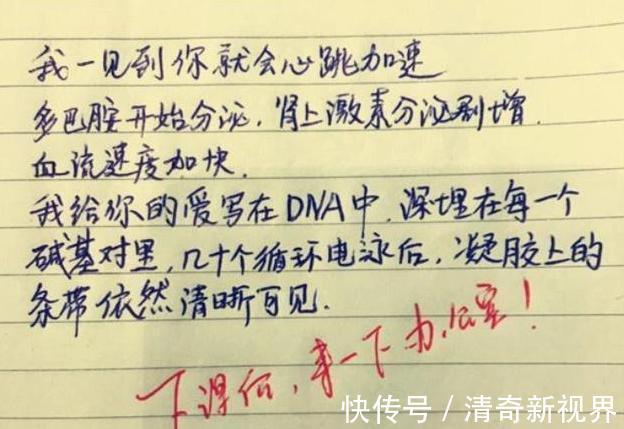 我一见到你就会心跳加速
多巴胺开始分泌,肾上激素分泌剧增.
血流速度加快.
我给你的爱写在DNA中.深埋在每一个
碱基对里,几十个循环电泳后,凝胶上的
条带依然清晰可见.
下课后,来一下办公室!
快传号/清奇新视界